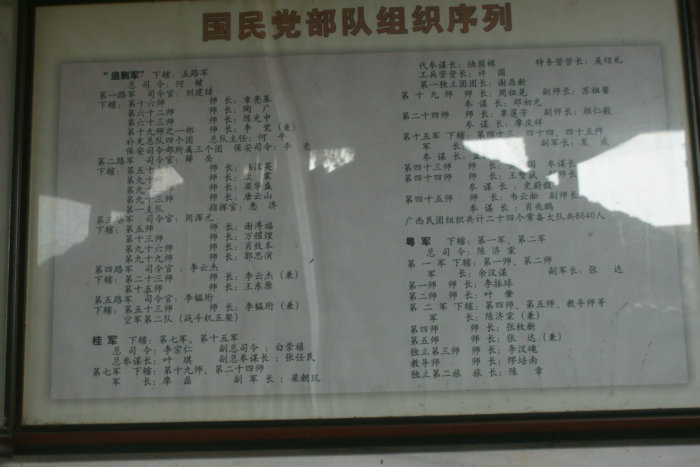 国民党部队组织序列
“追剿军” 下辖：五路军
总 司 令：何 健
第一路军 司令官：刘建绪
下辖：第十六师 师 长：章亮基
第六十二师 师 长：陶 广
第六十三师 师 长：陈光中
第十九师之一部 师 长：李 觉（兼）
补充总队四个团 总队主任：何 平
保安司令部所属三个团 保安司令：李 觉
第二路军 司令官：薛 岳
下辖：第五十 师 长：韩汉英
第九十 师 长： 震
第九十 师 长：梁华盛
第九十 师 长：唐云山
第一支队 指挥官：惠 济
第三路军 司令官：周浑元
下辖：第五师 师 长：谢溥福
第十三师 师 长：万耀煌
第九十六师 师 长：肖致本
第九十九师 师 长：郭思演
第四路军 司令官：李云杰
下辖：第二十三师 师 长：李云杰（兼）
第十五师 师 长：王东原
第五路军 司令官：李韫珩
下辖：第五十三师 师 长：李韫珩（兼）
空军第二队（战斗机五架）
桂 军 下辖：第七军、第十五军
总 司 令：李宗仁 副总司令：白崇禧
总参谋长：叶 琪 副总参谋长：张任民
第七军 下辖：第十九师、第二十四师
军 长：廖 磊 副 军 长：梁朝玑
代参谋长：陆荫楫 特务营营长：吴绍礼
工兵营营长：许 国
第一独立团团长：谢鼎新
第 十 九 师 师 长：周祖晃 副师长：苏祖馨
参 谋 长：邓初光
第二十四师 师 长：覃莲芳 副师长：颜仁毅
参 谋 长：廖庆祥
第十五军 下辖：第四十三、四十四、四十五师
军 长： 副军长：夏 威
参 谋 长：
第四十三师 师 长： 国 参谋长：
第四十四师 师 长：王赞斌 师长：
参 谋 长：史蔚馥
第四十五师 师 长：韦云淞 副师长：
参 谋 长：肖兆鹏
广西民团组织共计二十四个常备大队共8640人
粤 军 下辖：第一军、第二军
总 司 令：陈 济 棠
第 一 军 下辖：第一师、第二师
军 长：余汉谋 副军长：张 达
第一师 师 长：李振球
第二师 师 长：叶 肇
第 二 军 下辖：第四师、第五师、教导师等
军 长：陈济棠（兼）
第四师 师 长：张枚新
第五师 师 长：张 达（兼）
独立第三师 师 长：李汉魂
教导师 师 长：缪培南
独立第二旅 旅 长：陈 章